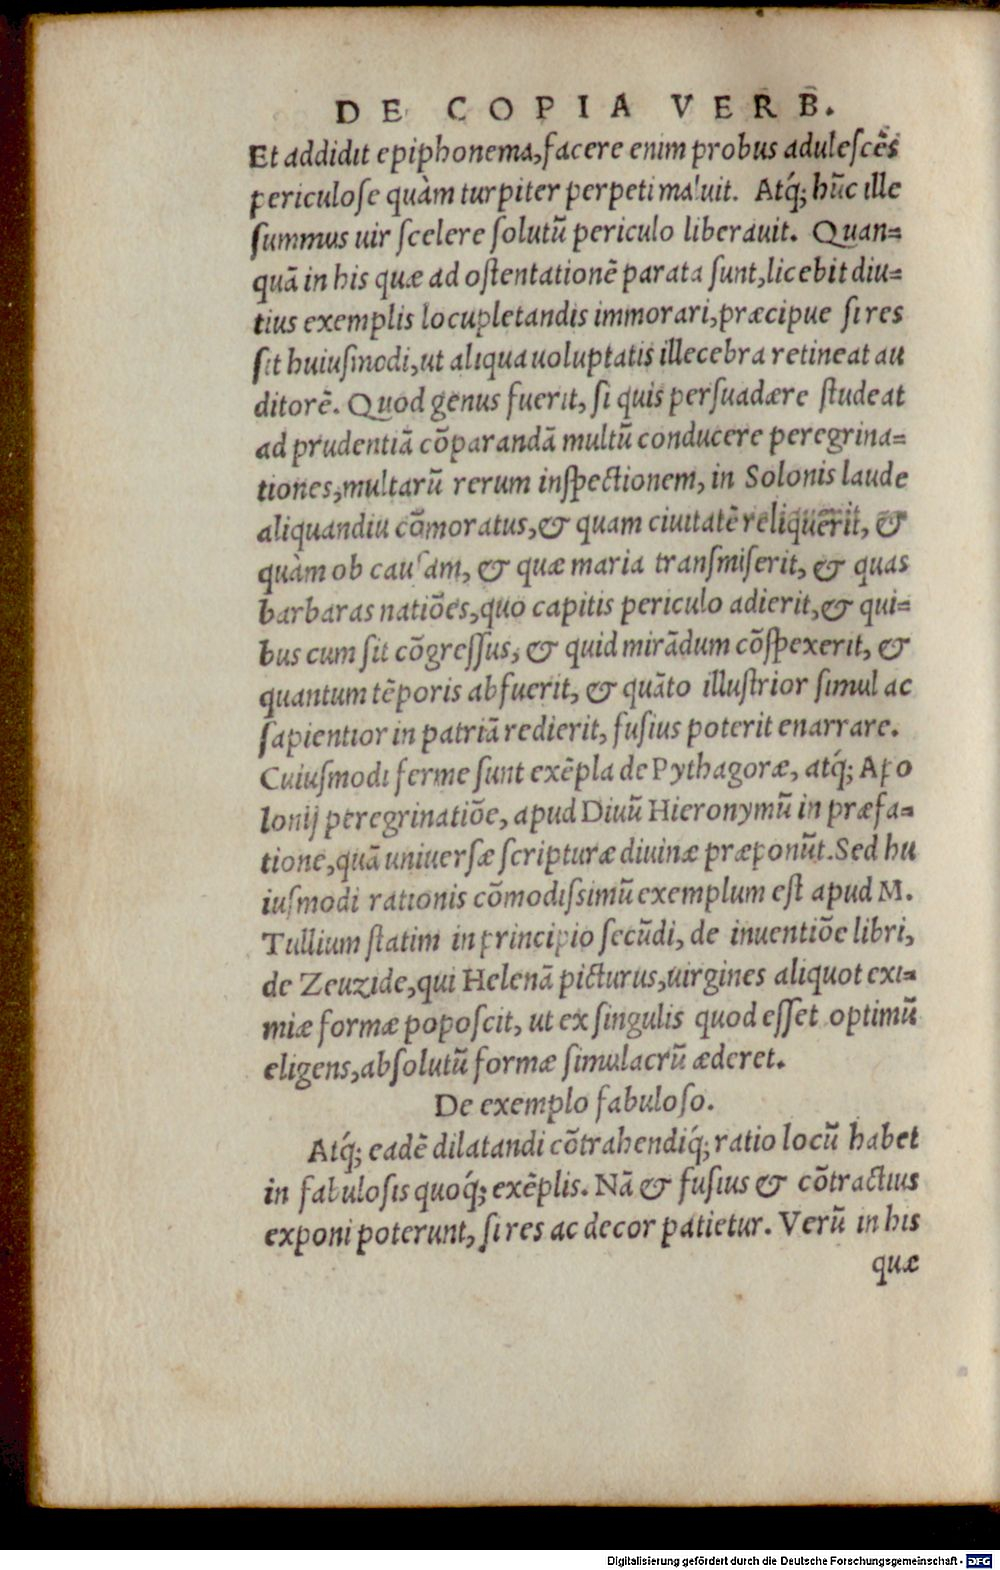 DE COPIA VERB.
Et addidit epiphonema, facere enim probus adulescẽs
periculose quàm turpiter perpeti maluit. Atq́; hũc ille
summus uir scelere solutũ periculo liberauit. Quan=
quã in his quæ ad ostentationẽ parata sunt, licebit diu=
tius exemplis locupletandis immorari, præcipue si res
sit huiusmodi, ut aliqua uoluptatis illecebra retineat au
ditorẽ. Quod genus fuerit, si quis persuadære studeat
ad prudentiã cõparandã multũ conducere peregrina=
tiones, multarũ rerum inspectionem, in Solonis laude
aliquandiu cõmoratus, & quam ciuitatẽ reliquerit, &
quàm ob causam, & quæ maria transmiserit, & quas
barbaras natiões, quo capitis periculo adierit, & qui=
bus cum sit cõgressus, & quid mirãdum cõspexerit, &
quantum tẽporis abfuerit, & quãto illustrior simul ac
sapientior in patriã redierit, fusius poterit enarrare.
Cuiusmodi ferme sunt exẽpla de Pythagoræ, atq́; Apo
lonij peregrinatiõe, apud Diuũ Hieronymũ in præfa=
tione, quã uniuersæ scripturæ diuinæ præponũt. Sed hu
iusmodi rationis cõmodissimũ exemplum est apud M.
Tullium statim in principio secũdi, de inuentiõe libri,
de Zeuzide, qui Helenã picturus, uirgines aliquot exi=
miæ formæ poposcit, ut ex singulis quod esset optimũ
eligens, absolutũ formæ simulacrũ æderet.
De exemplo fabuloso.
Atq́; eadẽ dilatandi cõtrahendiq́; ratio locũ habet
in fabulosis quoq́; exẽplis. Nã & fusius & cõtractius
exponi poterunt, si res ac decor patietur. Verũ in his
quæ
Digitalisierung gefördert durch die Deutsche Forschungsgemeinschaft - DFG